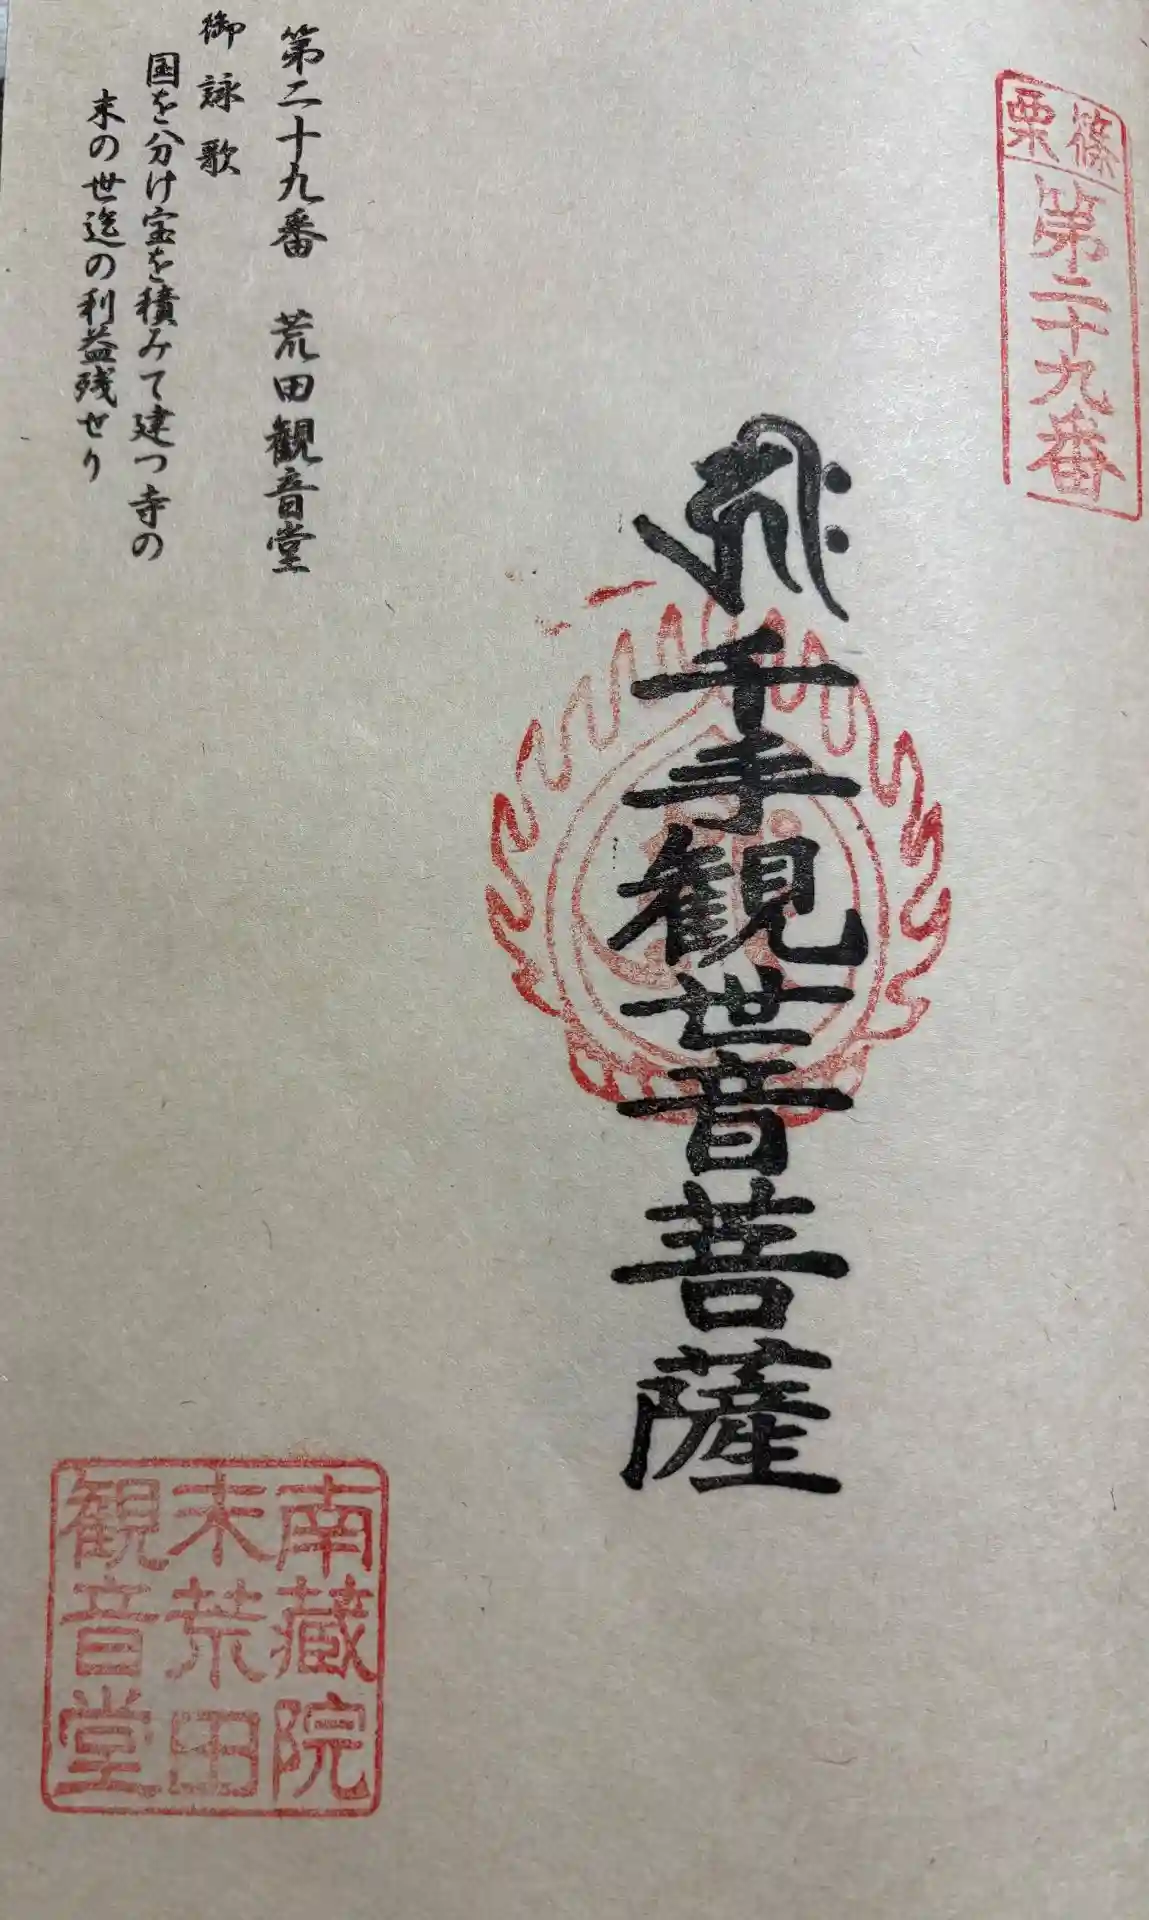 篠栗
第二十九番
千手観世音菩薩
第二十九番　荒田観音堂
御詠歌
国を分け宝を積みて建つ寺の
末の世迄の利益残せり
南蔵院
末荒田
観音堂